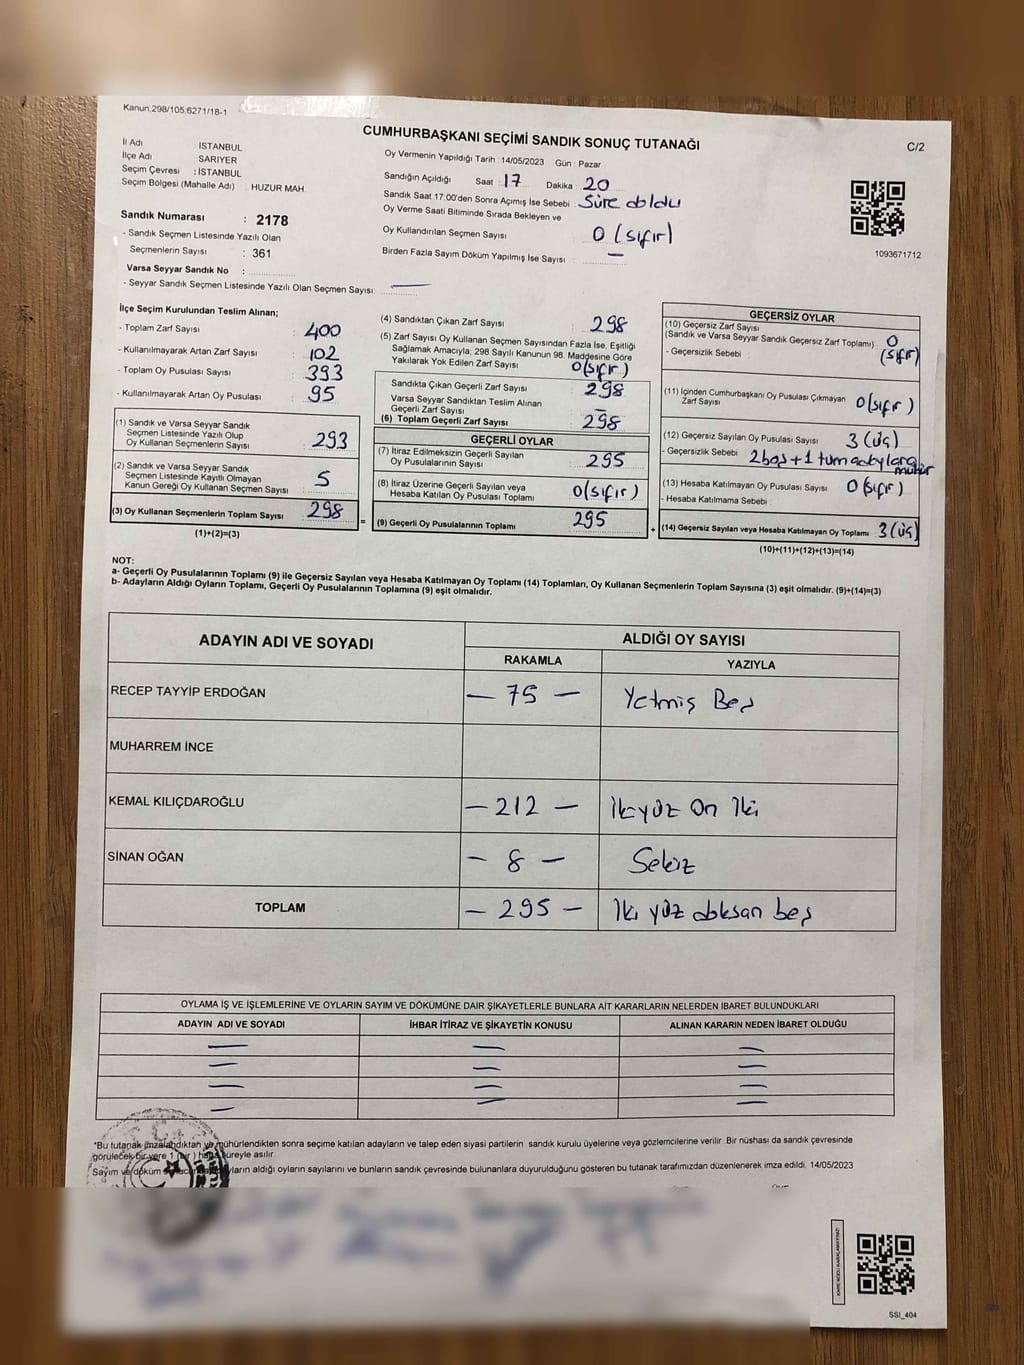 Kanun.298/105.6271/18-1
CUMHURBAŞKANI SEÇİMİ SANDIK SONUÇ TUTANAĞI
C/2
İl Adı İSTANBUL
İlçe Adı SARIYER
Seçim Çevresi : İSTANBUL
Seçim Bölgesi (Mahalle Adı) : HUZUR MAH.
Sandık Numarası : 2178
- Sandık Seçmen Listesinde Yazılı Olan
Seçmenlerin Sayısı : 361
Varsa Seyyar Sandık No :
- Seyyar Sandık Seçmen Listesinde Yazılı Olan Seçmen Sayısı: —
Oy Vermenin Yapıldığı Tarih : 14/05/2023 Gün : Pazar
Sandığın Açıldığı Saat : 17 Dakika : 20
Sandık Saat 17:00'den Sonra Açımış İse Sebebi : Süre doldu
Oy Verme Saati Bitiminde Sırada Bekleyen ve
Oy Kullandırılan Seçmen Sayısı 0 (sıfır)
Birden Fazla Sayım Döküm Yapılmış İse Sayısı : —
1093671712
İlçe Seçim Kurulundan Teslim Alınan;
- Toplam Zarf Sayısı : 400
- Kullanılmayarak Artan Zarf Sayısı : 102
- Toplam Oy Pusulası Sayısı : 393
- Kullanılmayarak Artan Oy Pusulası : 95
(1) Sandık ve Varsa Seyyar Sandık
Seçmen Listesinde Yazılı Olup
Oy Kullanan Seçmenlerin Sayısı : 293
(2) Sandık ve Varsa Seyyar Sandık
Seçmen Listesinde Kayıtlı Olmayan
Kanun Gereği Oy Kullanan Seçmen Sayısı : 5
(3) Oy Kullanan Seçmenlerin Toplam Sayısı : 298
(1)+(2)=(3)
=
(4) Sandıktan Çıkan Zarf Sayısı : 298
(5) Zarf Sayısı Oy Kullanan Seçmen Sayısından Fazla İse, Eşitliği
Sağlamak Amacıyla; 298 Sayılı Kanunun 98. Maddesine Göre
Yakılarak Yok Edilen Zarf Sayısı : 0(sıfır)
Sandıkta Çıkan Geçerli Zarf Sayısı : 298
Varsa Seyyar Sandıktan Teslim Alınan
Geçerli Zarf Sayısı : —
(6) Toplam Geçerli Zarf Sayısı : 298
GEÇERLİ OYLAR
(7) İtiraz Edilmeksizin Geçerli Sayılan
Oy Pusulalarının Sayısı : 295
(8) İtiraz Üzerine Geçerli Sayılan veya
Hesaba Katılan Oy Pusulası Toplamı : 0(sıfır)
(9) Geçerli Oy Pusulalarının Toplamı : 295
+
GEÇERSİZ OYLAR
(10) Geçersiz Zarf Sayısı
(Sandık ve Varsa Seyyar Sandık Geçersiz Zarf Toplamı) : 0
- Geçersizlik Sebebi : (sıfır)
(11) İçinden Cumhurbaşkanı Oy Pusulası Çıkmayan
Zarf Sayısı : 0(sıfır)
(12) Geçersiz Sayılan Oy Pusulası Sayısı : 3 (üç)
- Geçersizlik Sebebi : 2 boş + 1 tüm adaylara
mühür
(13) Hesaba Katılmayan Oy Pusulası Sayısı : 0 (sıfır)
- Hesaba Katılmama Sebebi :
(14) Geçersiz Sayılan veya Hesaba Katılmayan Oy Toplamı : 3 (üç)
(10)+(11)+(12)+(13)=(14)
NOT:
a- Geçerli Oy Pusulalarının Toplamı (9) ile Geçersiz Sayılan veya Hesaba Katılmayan Oy Toplamı (14) Toplamları, Oy Kullanan Seçmenlerin Toplam Sayısına (3) eşit olmalıdır. (9)+(14)=(3)
b- Adayların Aldığı Oyların Toplamı, Geçerli Oy Pusulalarının Toplamına (9) eşit olmalıdır.
ADAYIN ADI VE SOYADI
ALDIĞI OY SAYISI
RAKAMLA YAZIYLA
RECEP TAYYİP ERDOĞAN — 75 — Yetmiş Beş
MUHARREM İNCE
KEMAL KILIÇDAROĞLU — 212 — İkiyüz On İki
SİNAN OĞAN — 8 — Sekiz
TOPLAM — 295 — İki yüz doksan beş
OYLAMA İŞ VE İŞLEMLERİNE VE OYLARIN SAYIM VE DÖKÜMÜNE DAİR ŞİKAYETLERLE BUNLARA AİT KARARLARIN NELERDEN İBARET BULUNDUKLARI
ADAYIN ADI VE SOYADI İHBAR İTİRAZ VE ŞİKAYETİN KONUSU ALINAN KARARIN NEDEN İBARET OLDUĞU
— — —
— — —
— — —
— — —
*Bu tutanak imzalandıktan ve mühürlendikten sonra seçime katılan adayların ve talep eden siyasi partilerin sandık kurulu üyelerine veya gözlemcilerine verilir. Bir nüshası da sandık çevresinde
görülecek bir yere 1 (bir) hafta süreyle asılır.
Sayım ve döküm aldığı oyların sayılarını ve bunların sandık çevresinde bulunanlara duyurulduğunu gösteren bu tutanak tarafımızdan düzenlenerek imza edildi. 14/05/2023
SSI_404